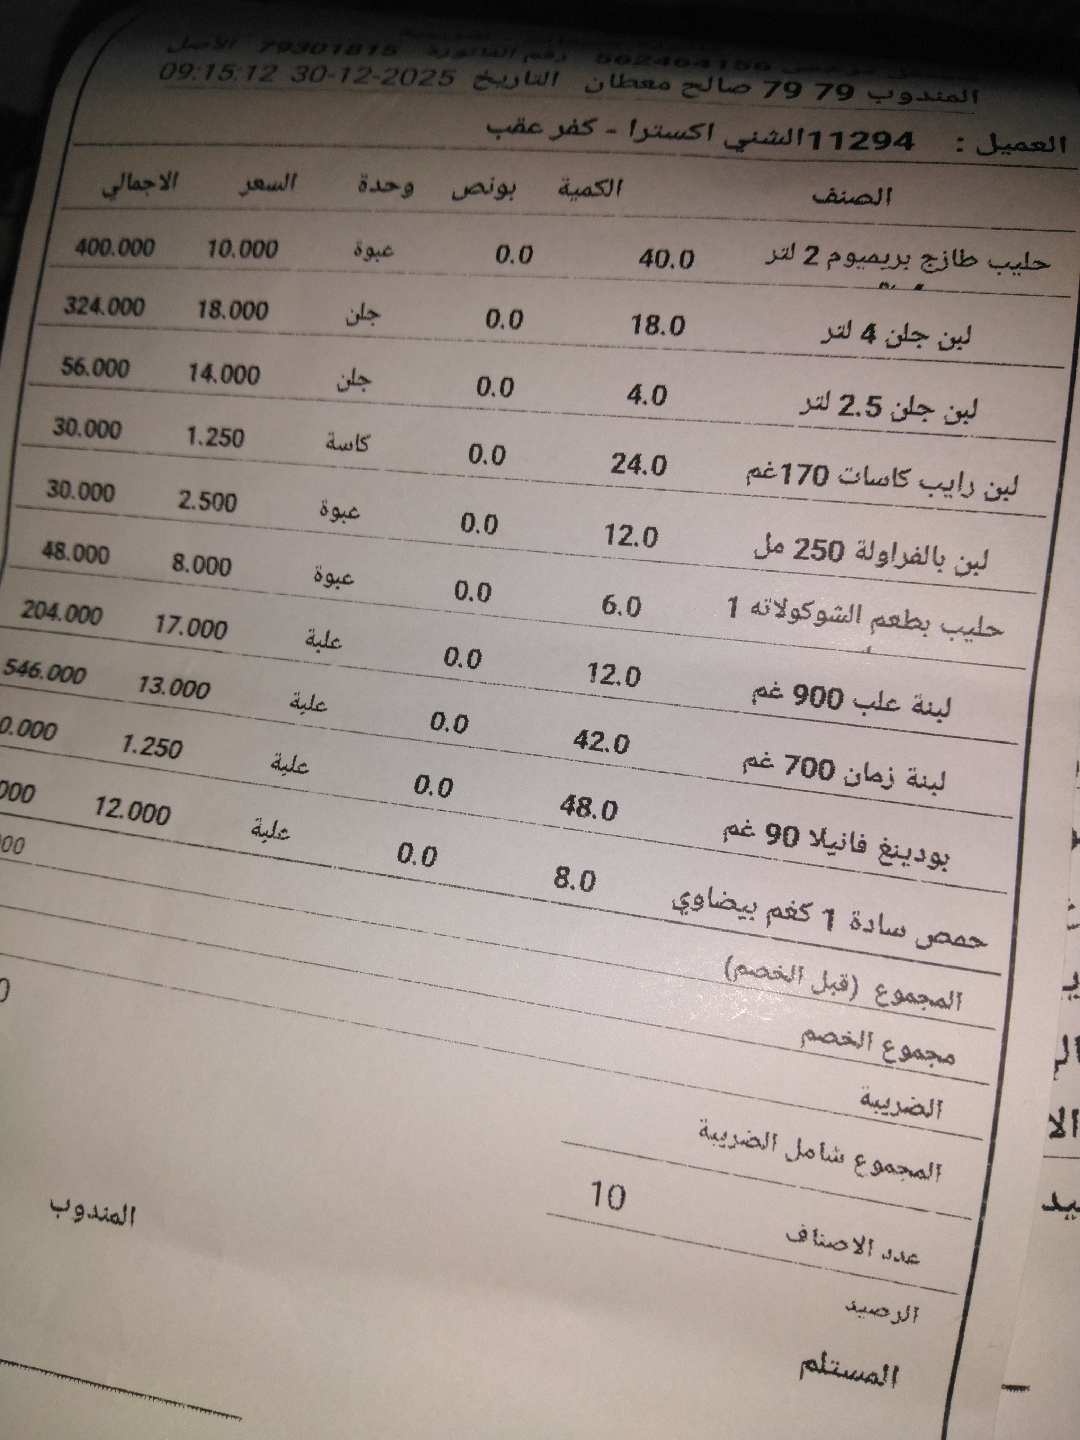 562464156 رقم الفاتورة 79301815 الأصل
المندوب 79 79 صالح معطان التاريخ 30-12-2025 09:15:12
العميل : 11294الشني اكسترا - كفر عقب
الصنف الكمية بونص وحدة السعر الاجمالي
حليب طازج بريميوم 2 لتر 40.0 0.0 عبوة 10.000 400.000
لبن جلن 4 لتر 18.0 0.0 جلن 18.000 324.000
لبن جلن 2.5 لتر 4.0 0.0 جلن 14.000 56.000
لبن رايب كاسات 170غم 24.0 0.0 كاسة 1.250 30.000
لبن بالفراولة 250 مل 12.0 0.0 عبوة 2.500 30.000
حليب بطعم الشوكولاته 1 6.0 0.0 عبوة 8.000 48.000
لبنة علب 900 غم 12.0 0.0 علبة 17.000 204.000
لبنة زمان 700 غم 42.0 0.0 علبة 13.000 546.000
بودينغ فانيلا 90 غم 48.0 0.0 علبة 1.250 0.000
حمص سادة 1 كغم بيضاوي 8.0 0.0 علبة 12.000 000
المجموع (قبل الخصم) 00
مجموع الخصم
الضريبة
المجموع شامل الضريبة 0
عدد الاصناف 10
الرصيد
المستلم المندوب